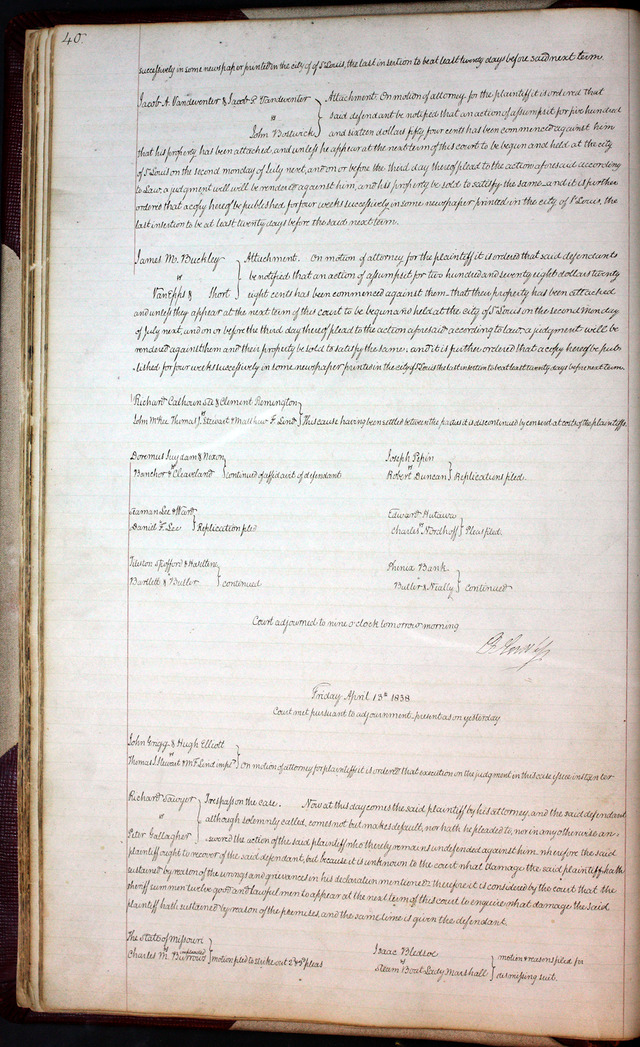 40.
successively in some newspaper printed in the city of of St Louis, the last insertion to be at least twenty days before said next term.
Jacob A. Vandeventer & Jacob P. Vandeventer
vs
John Bostwick
Attachment. On motion of attorney for the plaintiff it is ordered that
said defendant be notified that an action of assumpsit for five hundred
and sixteen dollars fifty four cents has been commenced against him
that his property has been attached, and unless he appear at the next term of this court to be begun and held at the city
of St Louis on the second monday of July next, and on or before the third day thereof plead to the action aforesaid according
to law, a judgment will will be rendered against him, and his property be sold to satisfy the same and it is further
ordered that a copy hereof be published for four weeks successively, in some newspaper printed in the city of St Louis, the
last insertion to be at least twenty days before the said next term.
James M. Buckley
vs
Van Epps & Short
Attachment. On motion of attorney for the plaintiff it is ordered that said defendants
be notified that an action of assumpsit for two hundred and seventy eight dollars twenty
eight cents has been commenced against them that their property has been attached
and unless they appear at the next term of this court to be begun and held at the city of St Louis on the second Monday
of July next, and on or before the third day thereof plead to the action aforesaid according to law, a judgment will be
rendered against them and their property be sold to satisfy the same, and it is further ordered that a copy hereof be pub-
lished for four weeks successively in some newspaper printed in the city of St Louis the last insertion to be at least twenty days before next term.
Richard Calhoun & Clement Remington
vs
John McKee Thomas J. Stewart & Matthew F. Lind
This cause having been settled between the parties it is discontinued by consent at costs of the plaintiffs.
Doremus Suydam & Nixon
vs
Bancker & Cleaveland
continued of affidavit of defendant
Joseph Pepin
vs
Robert Duncan
Replications filed.
Seaman Lee & Ward
Daniel F. Lee
Replication filed
Edward Hutawa
vs
Charles Nordhoff
Pleas filed.
Tileston Spofford & Haseltine
Bartlett & Butler
continued
Phenix Bank
Butler & Neally
continued
Court adjourned to nine o'clock tomorrow morning
Friday April 13th 1838
Court met pursuant to adjournment, present as on yesterday
John Grigg & Hugh Elliott
vs
Thomas J. Stewart & M. F. Lind impd.
On motion of attorney for plaintiffs it is ordered that execution on the judgment in this case issue instanter
Richard Sawyer
vs
Peter Gallagher
Trespass on the case. Now at this day comes the said plaintiff by his attorney, and the said defendant
although solemnly called, comes not but makes default, nor hath he pleaded to, nor in any otherwise an-
swered the action of the said plaintiff who thereby remains undefended against him. wherefore the said
plaintiff ought to recover of the said defendant, but because it is unknown to the court what damage the said plaintiff hath
sustained by reason of the wrongs and grievances in his declaration mentioned therefore it is considered by the court that the
sheriff summon twelve good and lawful men to appear at the next term of this court to enquire what damage the said
plaintiff hath sustained by reason of the premises, and the same time is given the defendant.
The State of Missouri
Charles M. Burrows impleaded
motion filed to strike out 2 & 3d pleas
Isaac Bledsoe
vs
Steam Boat Lady Marshall
motion & reasons filed for
dismissing suit.